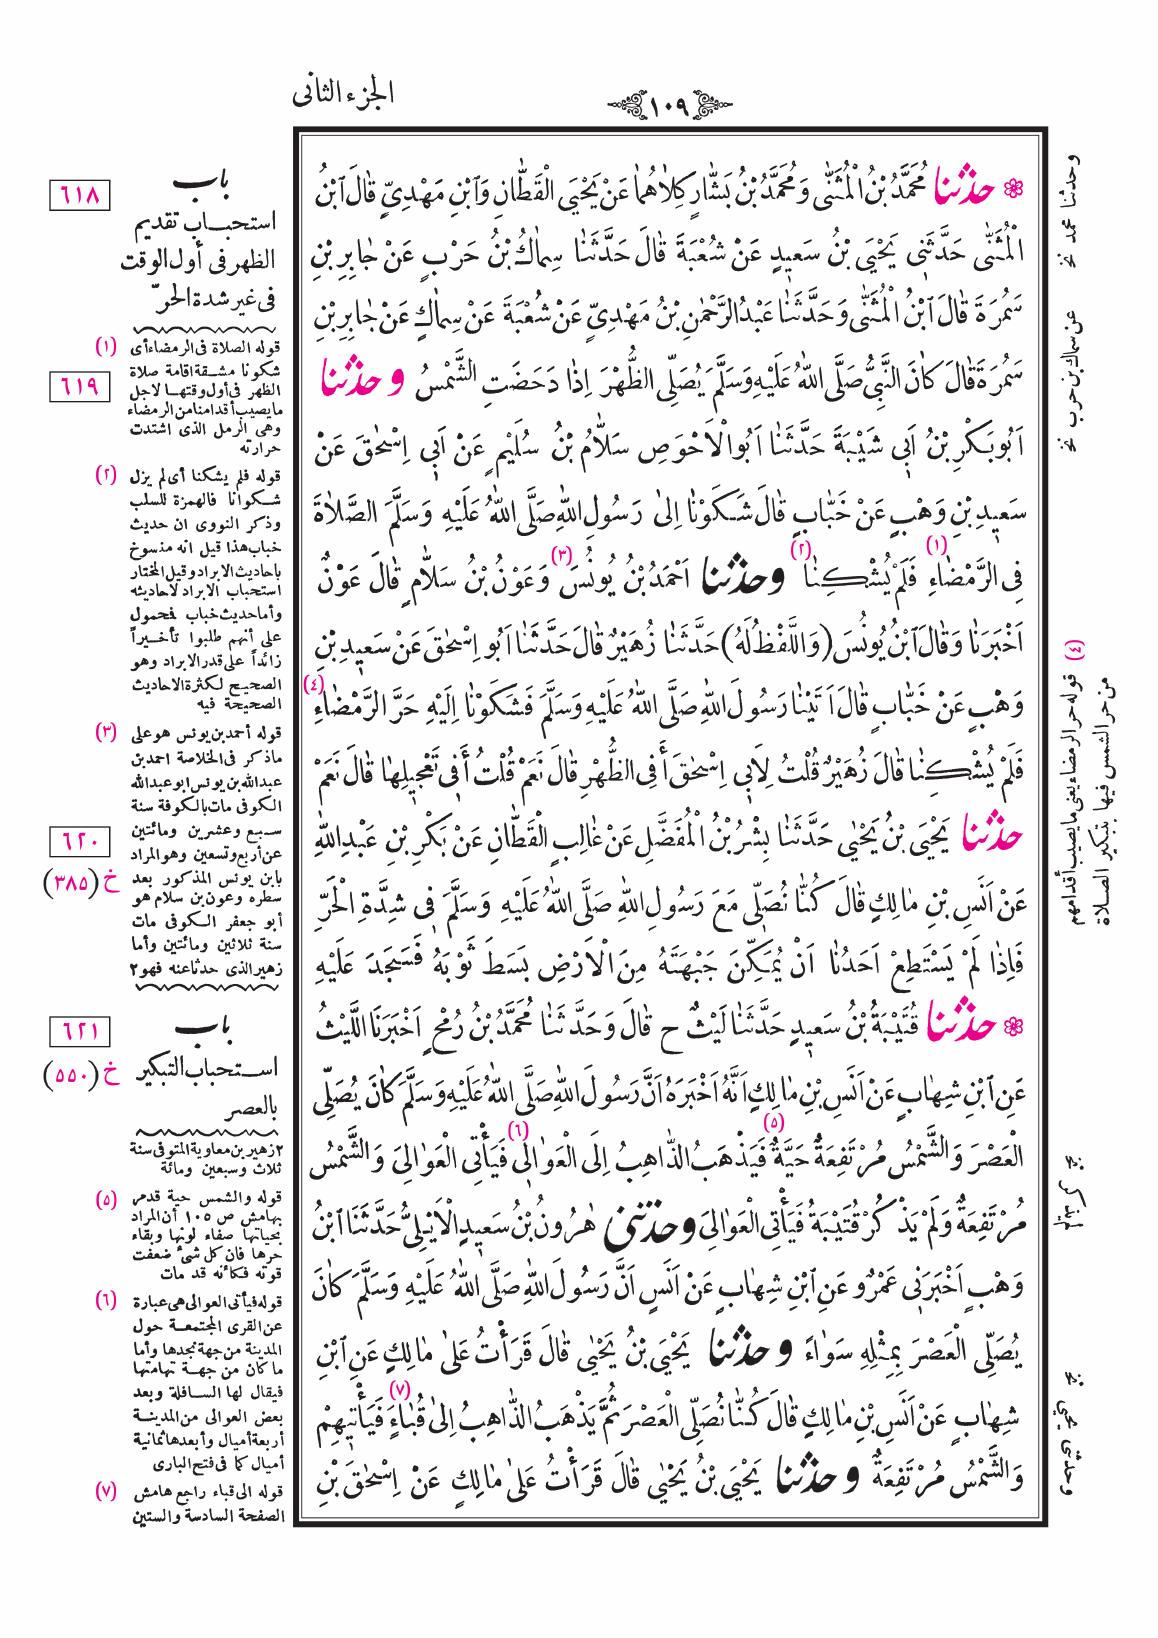 الجزء الثانى
١٠٩
حدثنا مُحَمَّدُ بْنُ الْمُثَنَّى وَمُحَمَّدُ بْنُ بَشَّارٍ كِلَاهُمَا عَنْ يَحْيَى الْقَطَّانِ وَابْنِ مَهْدِيٍّ قَالَ ابْنُ
الْمُثَنَّى حَدَّثَنِي يَحْيَى بْنُ سَعِيدٍ عَنْ شُعْبَةَ قَالَ حَدَّثَنَا سِمَاكُ بْنُ حَرْبٍ عَنْ جَابِرِ بْنِ
سَمُرَةَ قَالَ ابْنُ الْمُثَنَّى وَحَدَّثَنَا عَبْدُ الرَّحْمٰنِ بْنُ مَهْدِيٍّ عَنْ شُعْبَةَ عَنْ سِمَاكٍ عَنْ جَابِرِ بْنِ
سَمُرَةَ قَالَ كَانَ النَّبِيُّ صَلَّى اللهُ عَلَيْهِ وَسَلَّمَ يُصَلِّى الظُّهْرَ اِذَا دَحَضَتِ الشَّمْسُ وحدثنا
اَبُو بَكْرِ بْنُ اَبِي شَيْبَةَ حَدَّثَنَا اَبُو الْاَحْوَصِ سَلَّامُ بْنُ سُلَيْمٍ عَنْ اَبِي اِسْحٰقَ عَنْ
سَعِيدِ بْنِ وَهْبٍ عَنْ خَبَّابٍ قَالَ شَكَوْنَا اِلىٰ رَسُولِ اللهِ صَلَّى اللهُ عَلَيْهِ وَسَلَّمَ الصَّلَاةَ
فِى الرَّمْضَاءِ (١) فَلَمْ يُشْكِنَا (٢) وحدثنا اَحْمَدُ بْنُ يُونُسَ (٣) وَعَوْنُ بْنُ سَلَّامٍ قَالَ عَوْنٌ
اَخْبَرَنَا وَقَالَ ابْنُ يُونُسَ (وَاللَّفْظُ لَهُ) حَدَّثَنَا زُهَيْرٌ قَالَ حَدَّثَنَا اَبُو اِسْحٰقَ عَنْ سَعِيدِ بْنِ
وَهْبٍ عَنْ خَبَّابٍ قَالَ اَتَيْنَا رَسُولَ اللهِ صَلَّى اللهُ عَلَيْهِ وَسَلَّمَ فَشَكَوْنَا اِلَيْهِ حَرَّ الرَّمْضَاءِ (٤)
فَلَمْ يُشْكِنَا قَالَ زُهَيْرٌ قُلْتُ لِاَبِي اِسْحٰقَ أَفِى الظُّهْرِ قَالَ نَعَمْ قُلْتُ أَفِى تَعْجِيلِهَا قَالَ نَعَمْ
حدثنا يَحْيَى بْنُ يَحْيٰى حَدَّثَنَا بِشْرُ بْنُ الْمُفَضَّلِ عَنْ غَالِبٍ الْقَطَّانِ عَنْ بَكْرِ بْنِ عَبْدِ اللهِ
عَنْ اَنَسِ بْنِ مَالِكٍ قَالَ كُنَّا نُصَلِّى مَعَ رَسُولِ اللهِ صَلَّى اللهُ عَلَيْهِ وَسَلَّمَ فِي شِدَّةِ الْحَرِّ
فَاِذَا لَمْ يَسْتَطِعْ اَحَدُنَا اَنْ يُمَكِّنَ جَبْهَتَهُ مِنَ الْاَرْضِ بَسَطَ ثَوْبَهُ فَسَجَدَ عَلَيْهِ
حدثنا قُتَيْبَةُ بْنُ سَعِيدٍ حَدَّثَنَا لَيْثٌ ح قَالَ وَحَدَّثَنَا مُحَمَّدُ بْنُ رُمْحٍ اَخْبَرَنَا اللَّيْثُ
عَنِ ابْنِ شِهَابٍ عَنْ اَنَسِ بْنِ مَالِكٍ اَنَّهُ اَخْبَرَهُ اَنَّ رَسُولَ اللهِ صَلَّى اللهُ عَلَيْهِ وَسَلَّمَ كَانَ يُصَلِّى
الْعَصْرَ وَالشَّمْسُ مُرْتَفِعَةٌ حَيَّةٌ (٥) فَيَذْهَبُ الذَّاهِبُ اِلَى الْعَوَالِى (٦) فَيَأْتِى الْعَوَالِىَ وَالشَّمْسُ
مُرْتَفِعَةٌ وَلَمْ يَذْكُرْ قُتَيْبَةُ فَيَأْتِى الْعَوَالِىَ وحدثنى هٰرُونُ بْنُ سَعِيدٍ الْاَيْلِىُّ حَدَّثَنَا ابْنُ
وَهْبٍ اَخْبَرَنِى عَمْرٌو عَنِ ابْنِ شِهَابٍ عَنْ اَنَسٍ اَنَّ رَسُولَ اللهِ صَلَّى اللهُ عَلَيْهِ وَسَلَّمَ كَانَ
يُصَلِّى الْعَصْرَ بِمِثْلِهِ سَوَاءً وحدثنا يَحْيَى بْنُ يَحْيٰى قَالَ قَرَأْتُ عَلىٰ مَالِكٍ عَنِ ابْنِ
شِهَابٍ عَنْ اَنَسِ بْنِ مَالِكٍ قَالَ كُنَّا نُصَلِّى الْعَصْرَ ثُمَّ يَذْهَبُ الذَّاهِبُ اِلىٰ قُبَاءٍ (٧) فَيَأْتِيهِمْ
وَالشَّمْسُ مُرْتَفِعَةٌ وحدثنا يَحْيَى بْنُ يَحْيٰى قَالَ قَرَأْتُ عَلىٰ مَالِكٍ عَنْ اِسْحٰقَ بْنِ
وحدثنا محمد نخ
عن سماك بن حرب نخ
(٤) قوله حر الرمضاء يعنى ما يصيب أقدامهم
من حر الشمس فيها بتبكير الصلاة
وحدثني يحيى نخ
٦١٨
باب
استحباب تقديم
الظهر فى أول الوقت
فى غير شدة الحرّ
(١) قوله الصلاة فى الرمضاء أى
شكونا مشقة اقامة صلاة
الظهر فى أول وقتها لاجل
ما يصيب أقدامنا من الرمضاء
وهى الرمل الذى اشتدت
حرارته
٦١٩
(٢) قوله فلم يشكنا أى لم يزل
شكوانا فالهمزة للسلب
وذكر النووى ان حديث
خباب هذا قيل انه منسوخ
باحاديث الابراد وقيل المختار
استحباب الابراد لاحاديثه
وأما حديث خباب فمحمول
على أنهم طلبوا تأخيراً
زائداً على قدر الابراد وهو
الصحيح لكثرة الاحاديث
الصحيحة فيه
(٣) قوله أحمد بن يونس هو على
ماذكر فى الخلاصة احمد بن
عبدالله بن يونس ابو عبدالله
الكوفى مات بالكوفة سنة
سبع وعشرين ومائتين
عن أربع وتسعين وهو المراد
بابن يونس المذكور بعد
سطره وعون بن سلام هو
أبو جعفر الكوفى مات
سنة ثلاثين ومائتين وأما
زهير الذى حدثا عنه فهو ٢
٦٢٠
خ (٣٨٥)
٦٢١
خ (٥٥٠)
باب
استحباب التبكير
بالعصر
٢ زهير بن معاوية المتوفى سنة
ثلاث وسبعين ومائة
(٥) قوله والشمس حية قدمر
بهامش ص ١٠٥ أن المراد
بحياتها صفاء لونها وبقاء
حرها فان كل شئ ضعفت
قوته فكأنه قد مات
(٦) قوله فيأتى العوالى هى عبارة
عن القرى المجتمعة حول
المدينة من جهة نجدها وأما
ما كان من جهة تهامتها
فيقال لها السافلة وبعد
بعض العوالى من المدينة
أربعة أميال وأبعدها ثمانية
أميال كما فى فتح البارى
(٧) قوله الى قباء راجع هامش
الصفحة السادسة والستين